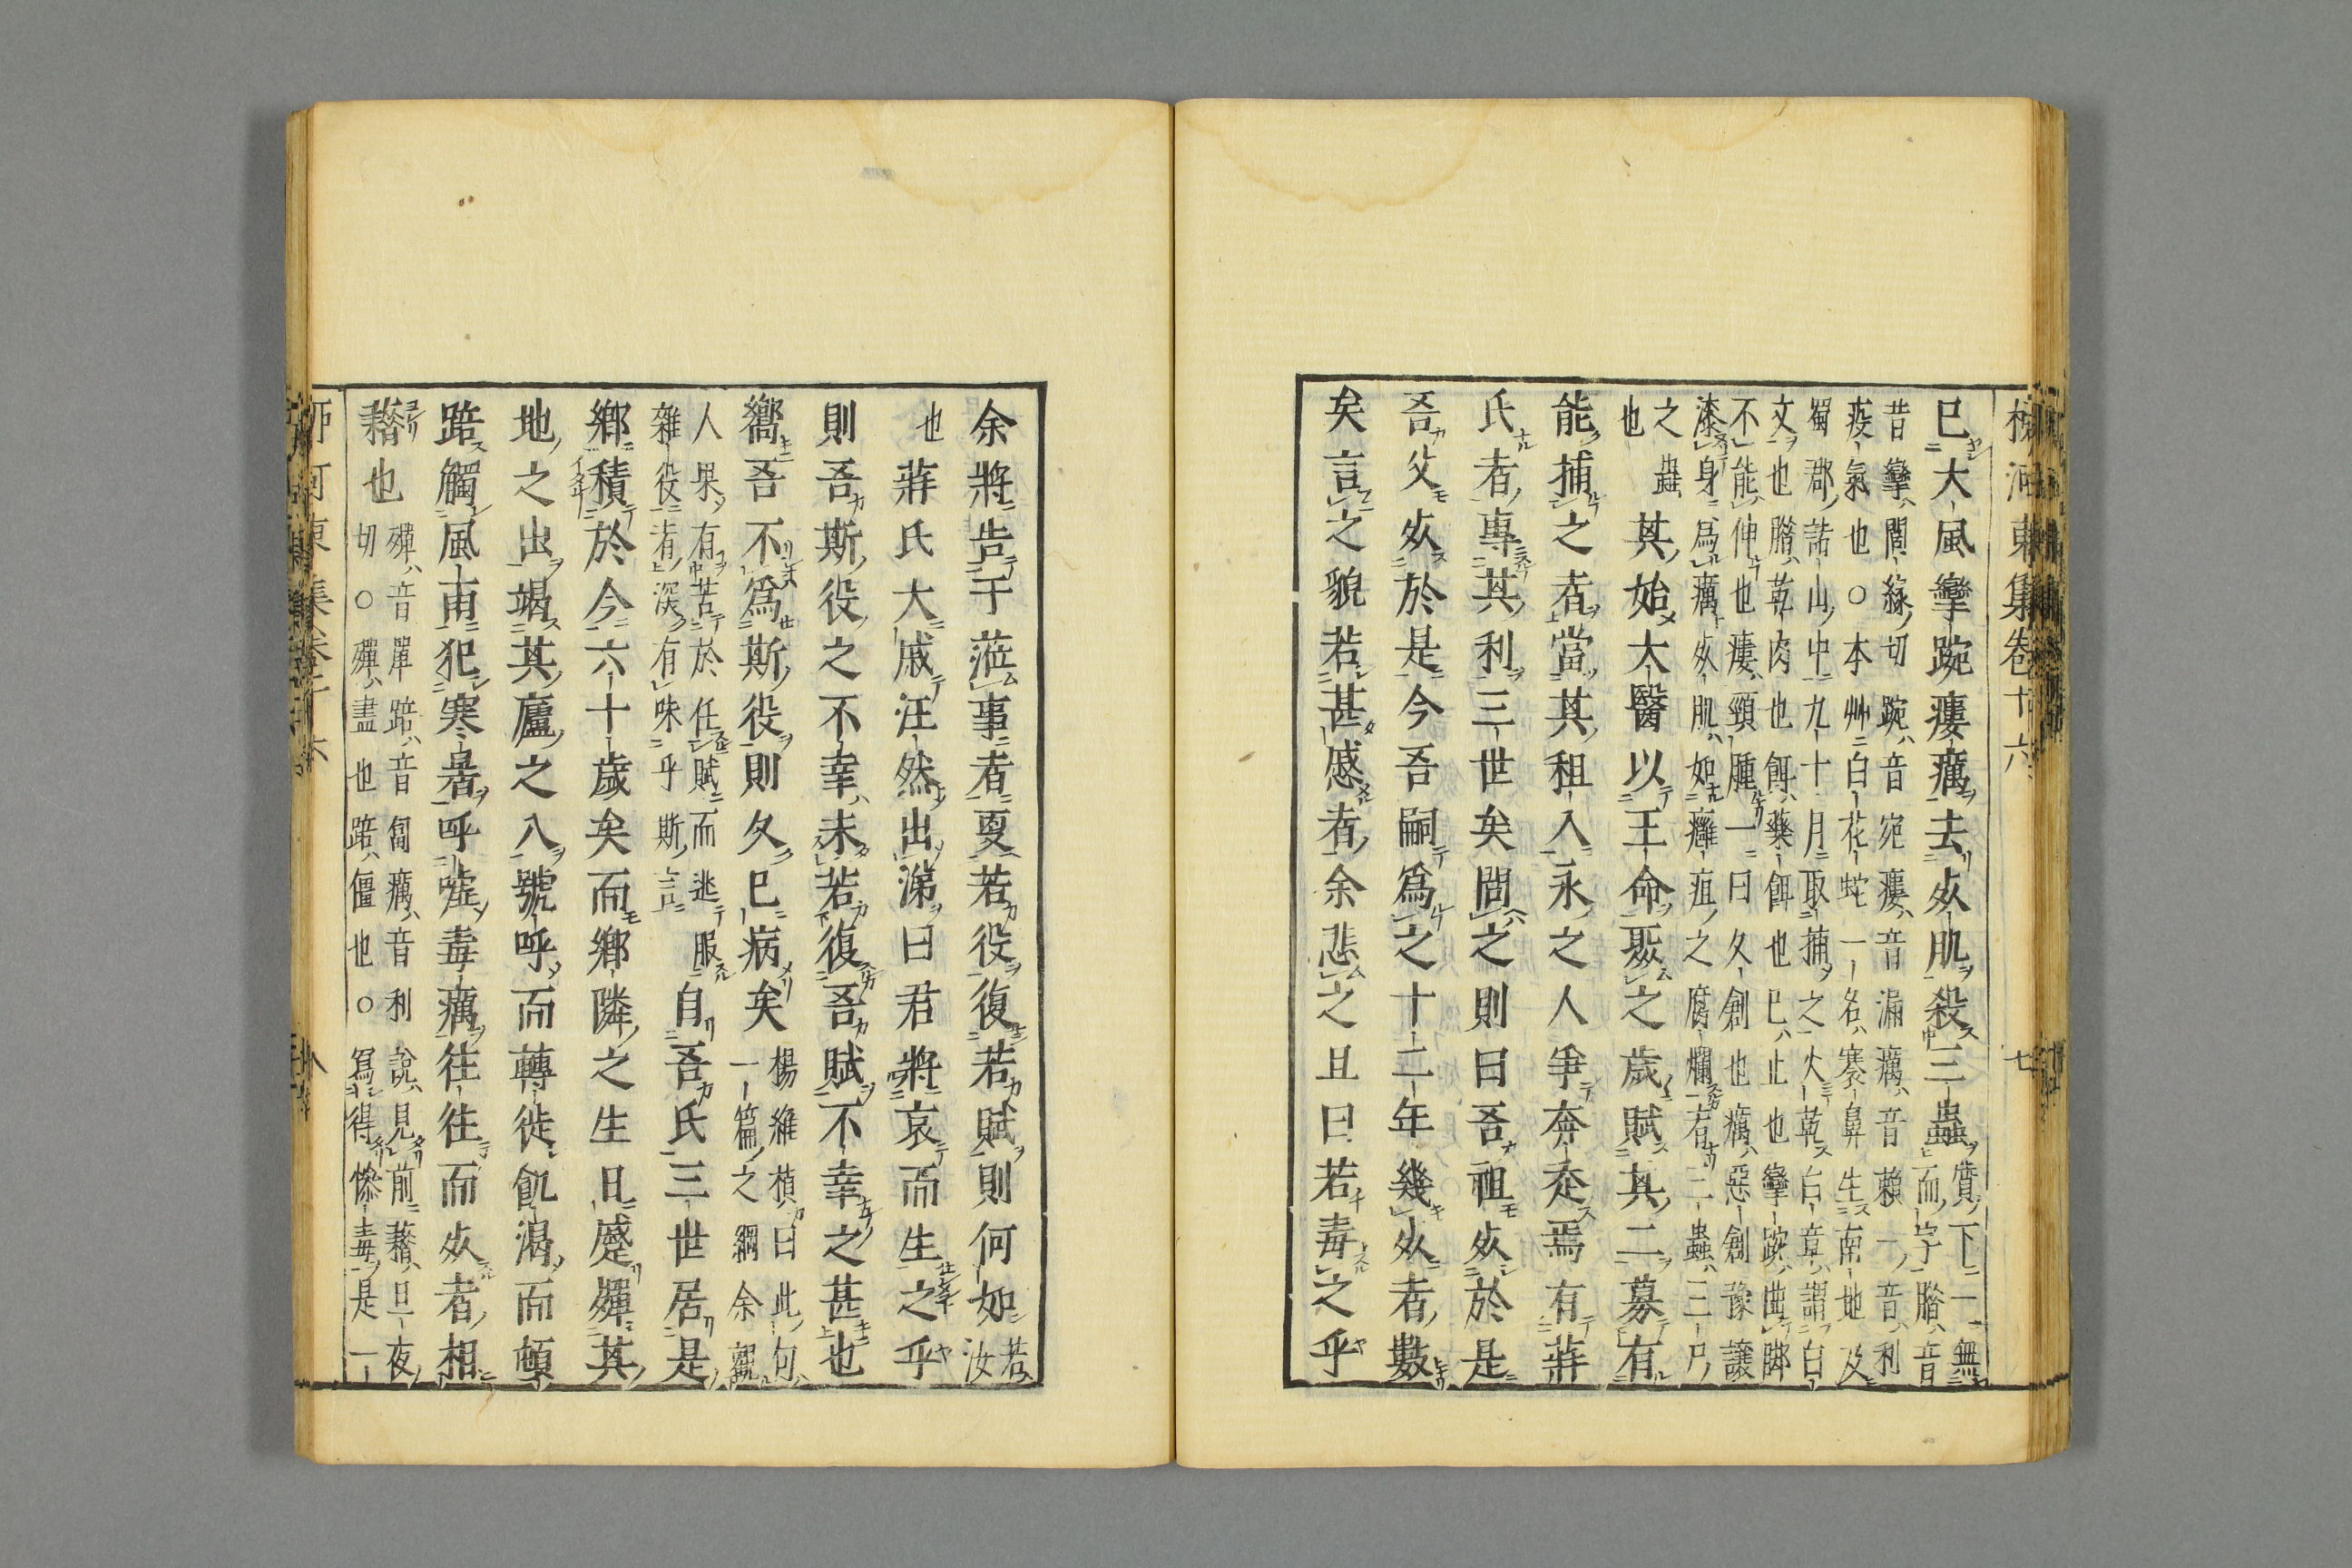 柳河東集卷十六 七
已大風攣踠瘻癘去死肌殺三蟲
質下一無
而字腊音
昔攣閭緣切踠音宛瘻音漏癘音賴一音利
疫氣也○本艸白花蛇一名褰鼻生南地及
蜀郡諸山中九十月取捕之火乾白章謂白
文也腊乾肉也餌藥餌也已止也攣踠曲脚
不能伸也瘻頸腫一曰久創也癘惡創豫讓
漆身爲癘死肌如癰疽之腐爛者三蟲三尸
之蟲
也
其始大醫以王命聚之歲賦其二募有
能捕之者當其租入永之人爭奔走焉有蔣
氏者專其利三世矣問之則曰吾祖死於是
吾父死於是今吾嗣爲之十二年幾死者數
矣言之貌若甚慼者余悲之且曰若毒之乎
余將告于蒞事者更若役復若賦則何如
若汝
也
蔣氏大戚汪然出涕曰君將哀而生之乎
則吾斯役之不幸未若復吾賦不幸之甚也
嚮吾不爲斯役則久已病矣
楊維楨曰此句
一篇之綱余觀
人果有苦於任賦而逃服
雜役者深有味乎斯言
自吾氏三世居是
鄉積於今六十歲矣而鄉隣之生日蹙殫其
地之出竭其廬之入號呼而轉徙飢渴而頓
踣觸風雨犯寒暑呼噓毒癘往往而死者相
藉也
殫音單踣音匐癘音利說見前藉旦夜
切○殫盡也踣僵也○寫得慘毒是一
柳河東集卷十六 八